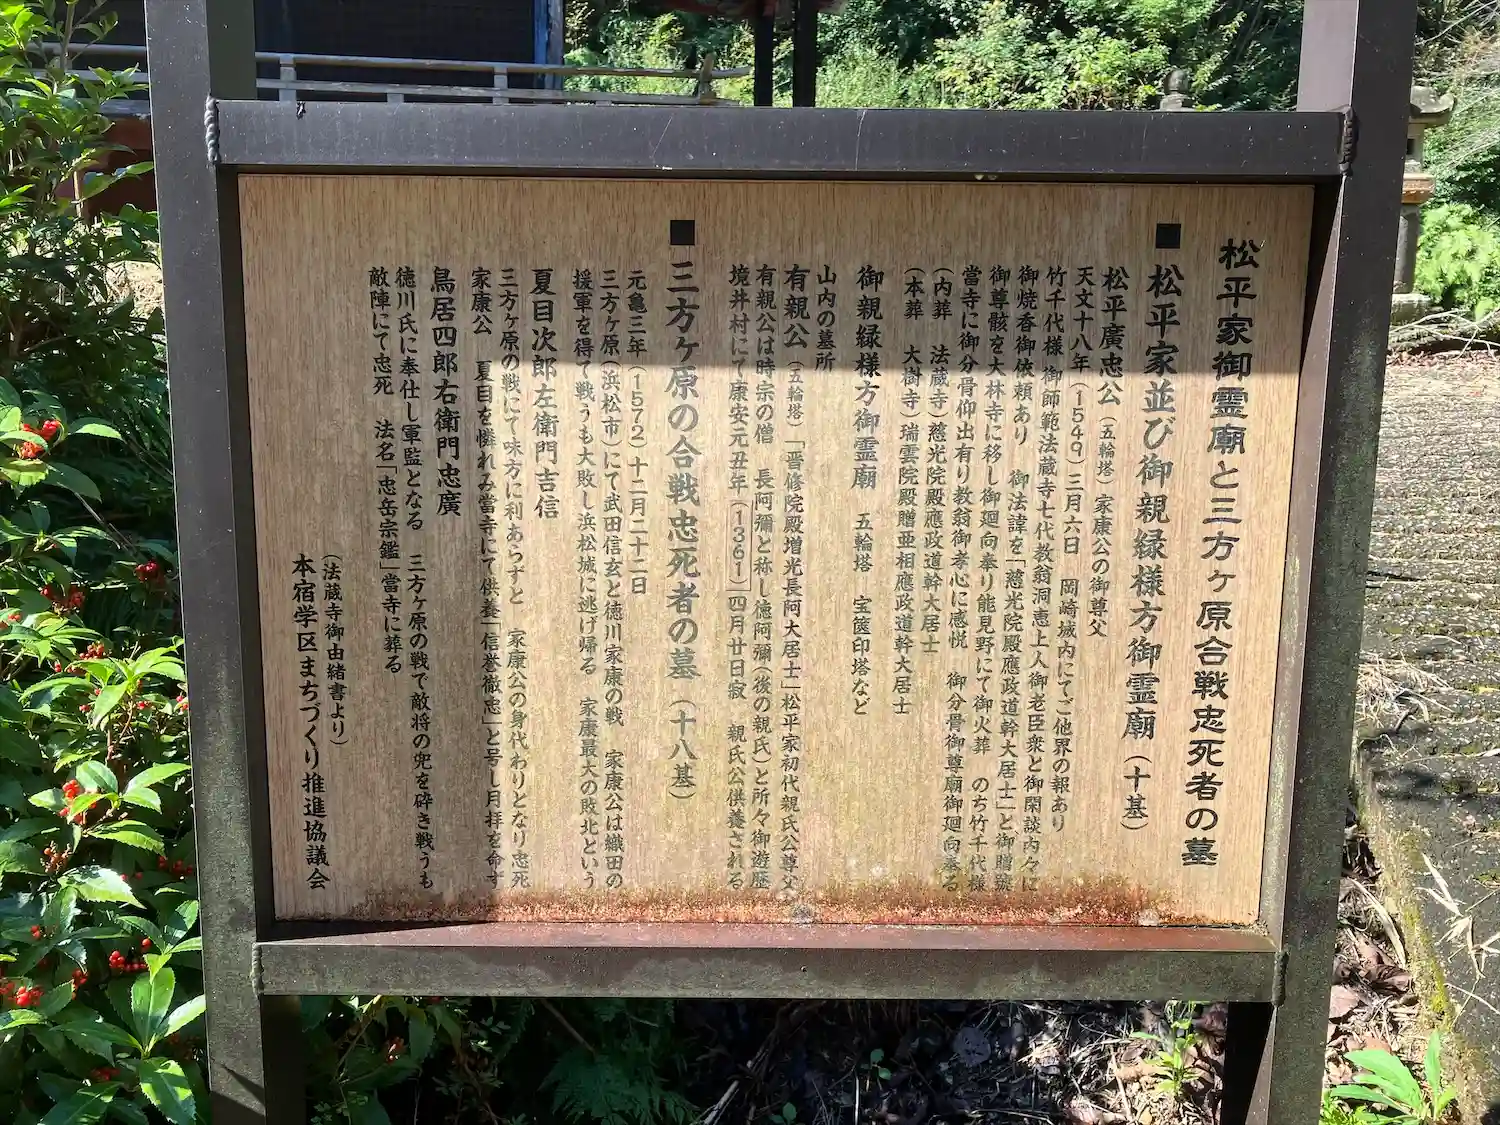 松平家御霊廟と三方ヶ原合戦忠死者の墓
■松平家並び御親縁様方御霊廟（十基）
松平廣忠公（五輪塔）家康公の御尊父
天文十八年（1549）三月六日　岡崎城内にてご他界の報あり
竹千代様　御師範法蔵寺七代教翁洞恵上人御老臣衆と御閑談内々に
御焼香御依頼あり　御法諱を「慈光院殿應政道幹大居士」と御贈號
御尊骸を大林寺に移し御廻向奉り能見野にて御火葬　のち竹千代様
當寺に御分骨仰出有り教翁御孝心に感悦　御分骨御尊廟御廻向奉る
（内葬　法蔵寺）慈光院殿應政道幹大居士
（本葬　大樹寺）瑞雲院殿贈亜相應政道幹大居士
御親縁様方御霊廟　五輪塔　宝篋印塔など
山内の墓所
有親公（五輪塔）「晋修院殿増光長阿大居士」松平家初代親氏公尊父
有親公は時宗の僧　長阿彌と称し徳阿彌（後の親氏）と所々御遊歴
境井村にて康安元丑年（1361）四月廿日寂　親氏公供養される
■三方ヶ原の合戦忠死者の墓（十八基）
元亀三年（1572）十二月二十二日
三方ヶ原（浜松市）にて武田信玄と徳川家康の戦　家康公は織田の
援軍を得て戦うも大敗し浜松城に逃げ帰る　家康最大の敗北という
夏目次郎左衛門吉信
三方ヶ原の戦にて味方に利あらずと　家康公の身代わりとなり忠死
家康公　夏目を憐れみ當寺にて供養「信誉徹忠」と号し月拝を命ず
鳥居四郎右衛門忠廣
徳川氏に奉仕し軍監となる　三方ヶ原の戦で敵将の兜を砕き戦うも
敵陣にて忠死　法名「忠岳宗鑑」當寺に葬る
（法蔵寺御由緒書より）
本宿学区まちづくり推進協議会